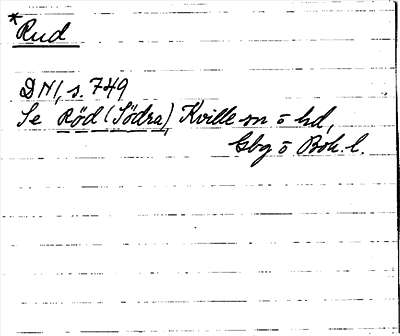 *Rud
DN 1, s. 749
Se Röd (Södra), Kville sn o hd,
Gbg o Boh. l.